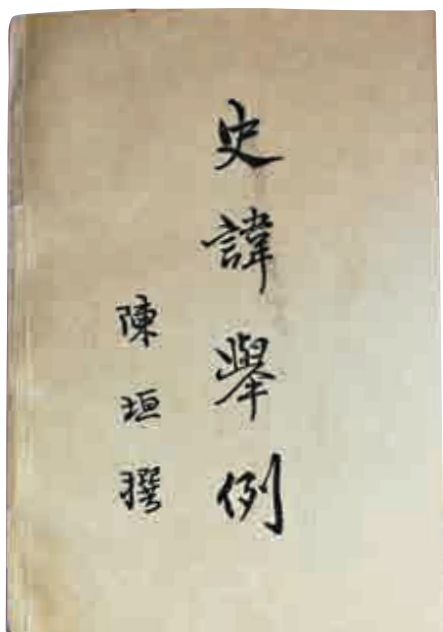 史諱舉例
陳垣撰